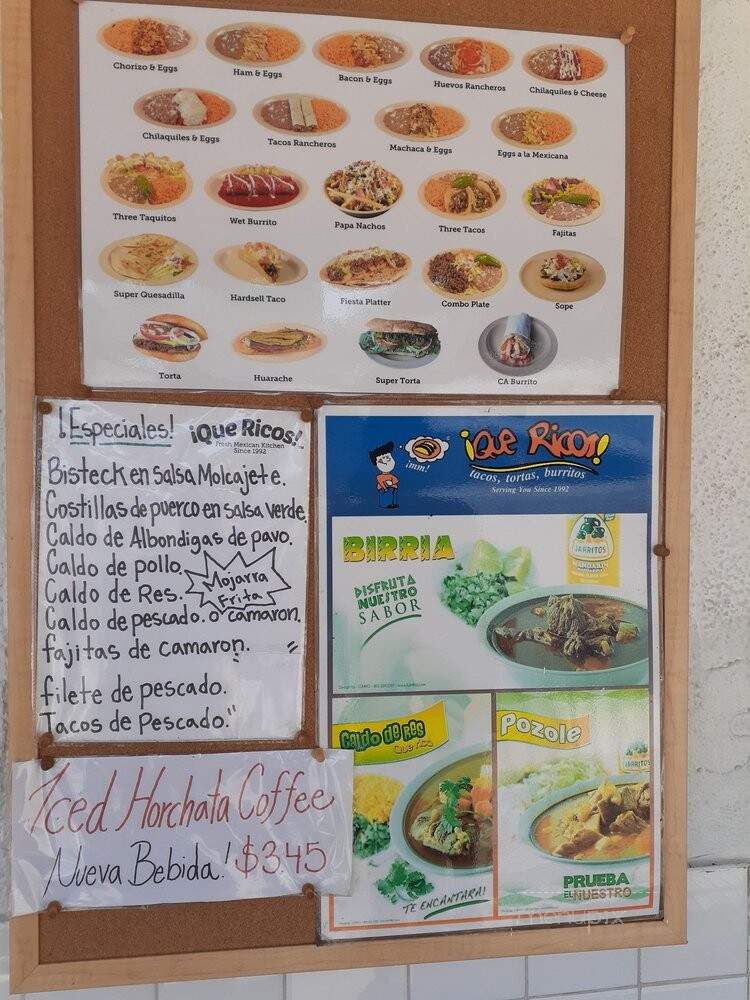 Chorizo & Eggs
Ham & Eggs
Bacon & Eggs
Huevos Rancheros
Chilaquiles & Cheese
Chilaquiles & Eggs
Tacos Rancheros
Machaca & Eggs
Eggs a la Mexicana
Three Taquitos
Wet Burrito
Papa Nachos
Three Tacos
Fajitas
Super Quesadilla
Hardsell Taco
Fiesta Platter
Combo Plate
Sope
Torta
Huarache
Super Torta
CA Burrito
¡Especiales!
¡Que Ricos!
Fresh Mexican Kitchen
Since 1992
Bisteck en Salsa Molcajete.
Costillas de puerco en salsa verde.
Caldo de Albondigas de pavo.
Caldo de pollo.
Mojarra
Frita
Caldo de Res.
Caldo de pescado. o camaron.
fajitas de camaron. "
filete de pescado.
Tacos de Pescado."
Iced Horchata Coffee
Nueva Bebida! $3.45
¡mm!
¡Que Ricos!
tacos, tortas, burritos
Serving You Since 1992
BIRRIA
DISFRUTA
NUESTRO
SABOR
JARRITOS
MANDARIN
Caldo de Res
Que rico
TE ENCANTARA!
Pozole
JARRITOS
PRUEBA
EL NUESTRO